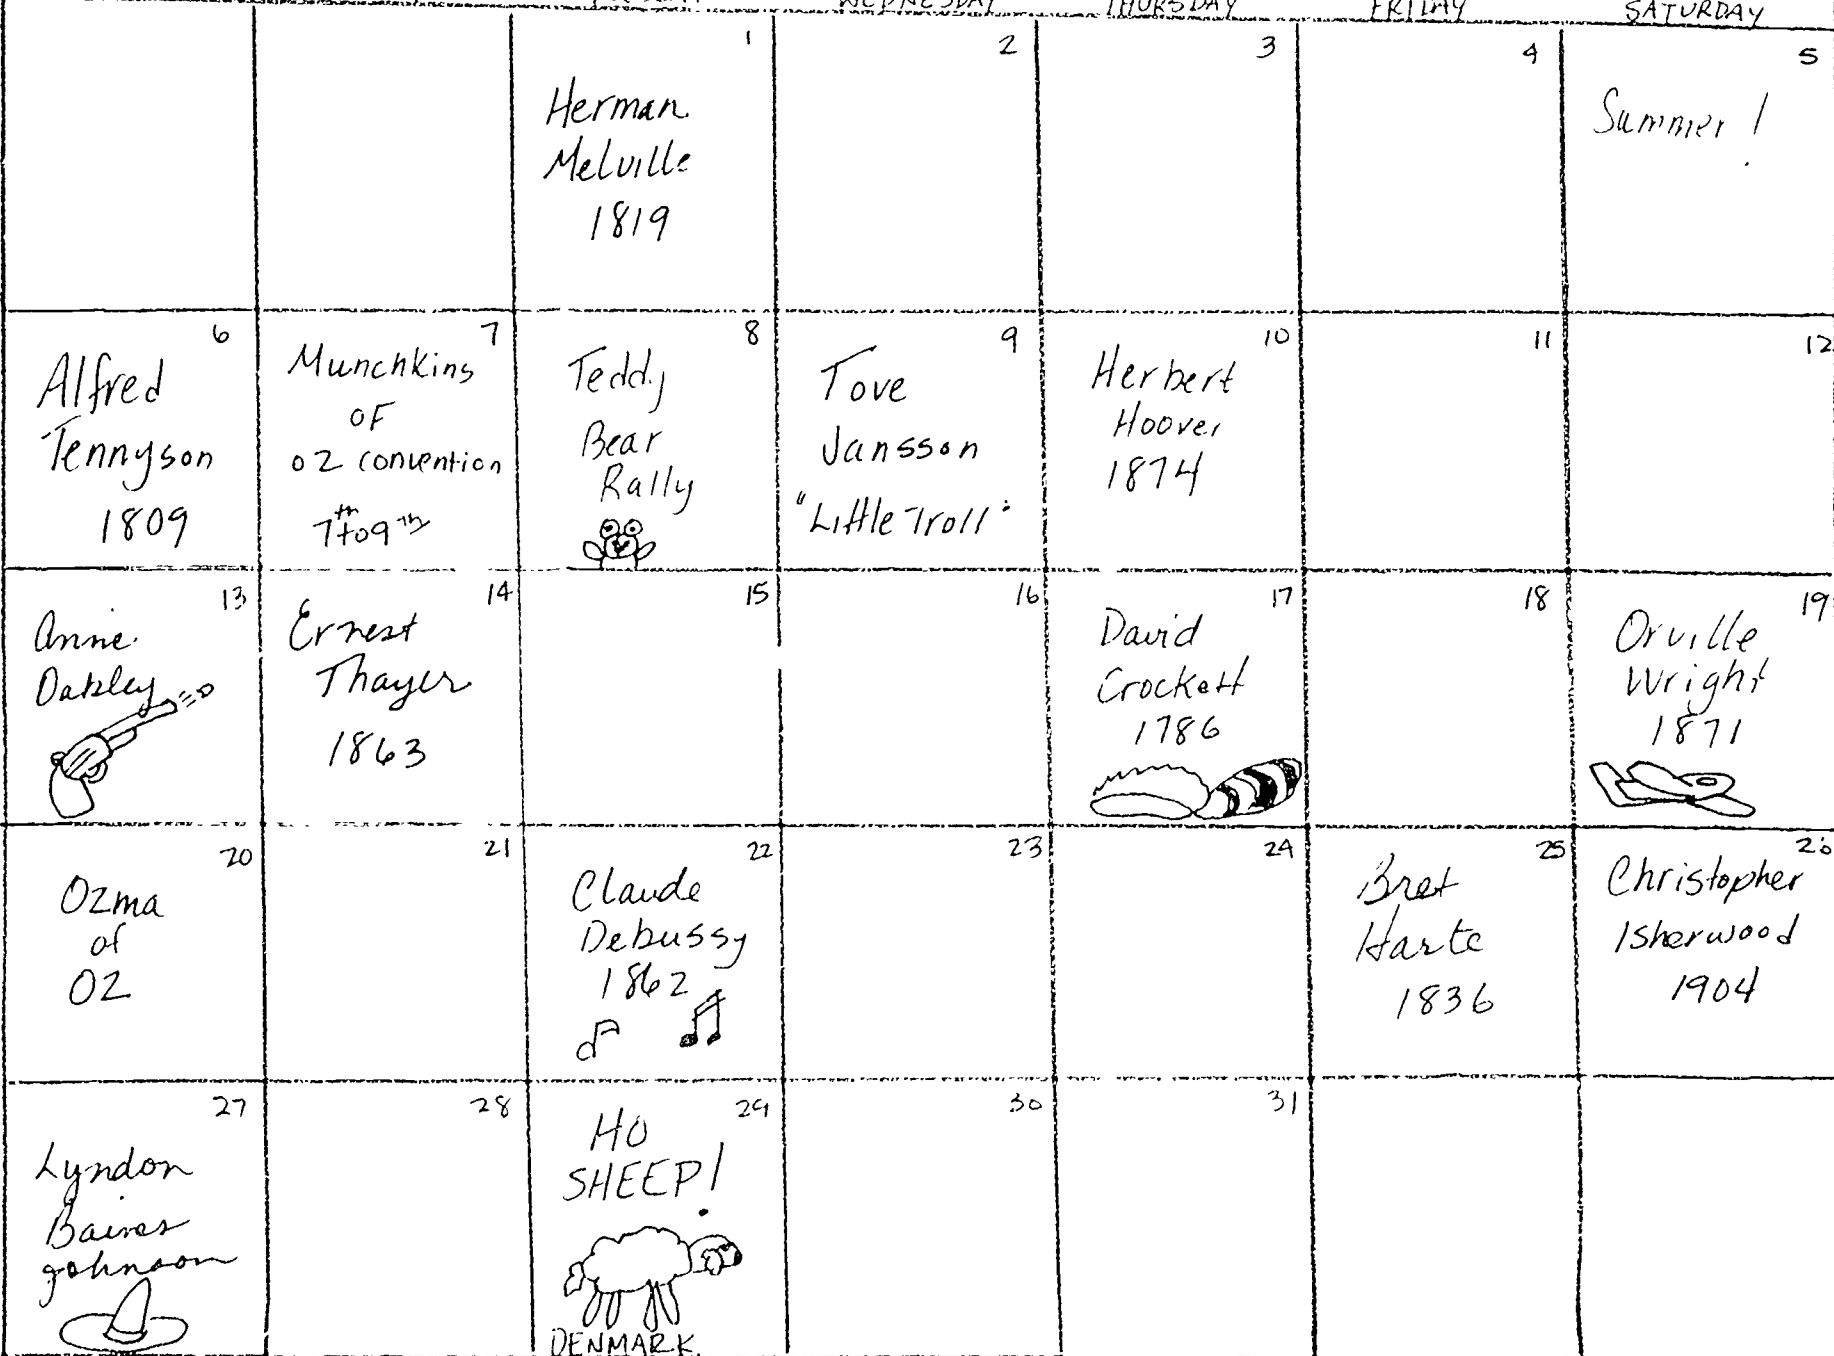 WEDNESDAY THURSDAY FRIDAY SATURDAY
1
Herman
Melville
1819
2
3
4
5
Summer!
6
Alfred
Tennyson
1809
7
Munchkins
OF
OZ convention
7th to 9th
8
Teddy
Bear
Rally
9
Tove
Jansson
"Little Troll"
10
Herbert
Hoover
1874
11
12
13
Anne
Oakley
14
Ernest
Thayer
1863
15
16
17
David
Crockett
1786
18
19
Orville
Wright
1871
20
Ozma
of
OZ
21
22
Claude
Debussy
1862
23
24
25
Bret
Harte
1836
26
Christopher
Isherwood
1904
27
Lyndon
Baines
Johnson
28
29
HO
SHEEP!
DENMARK
30
31